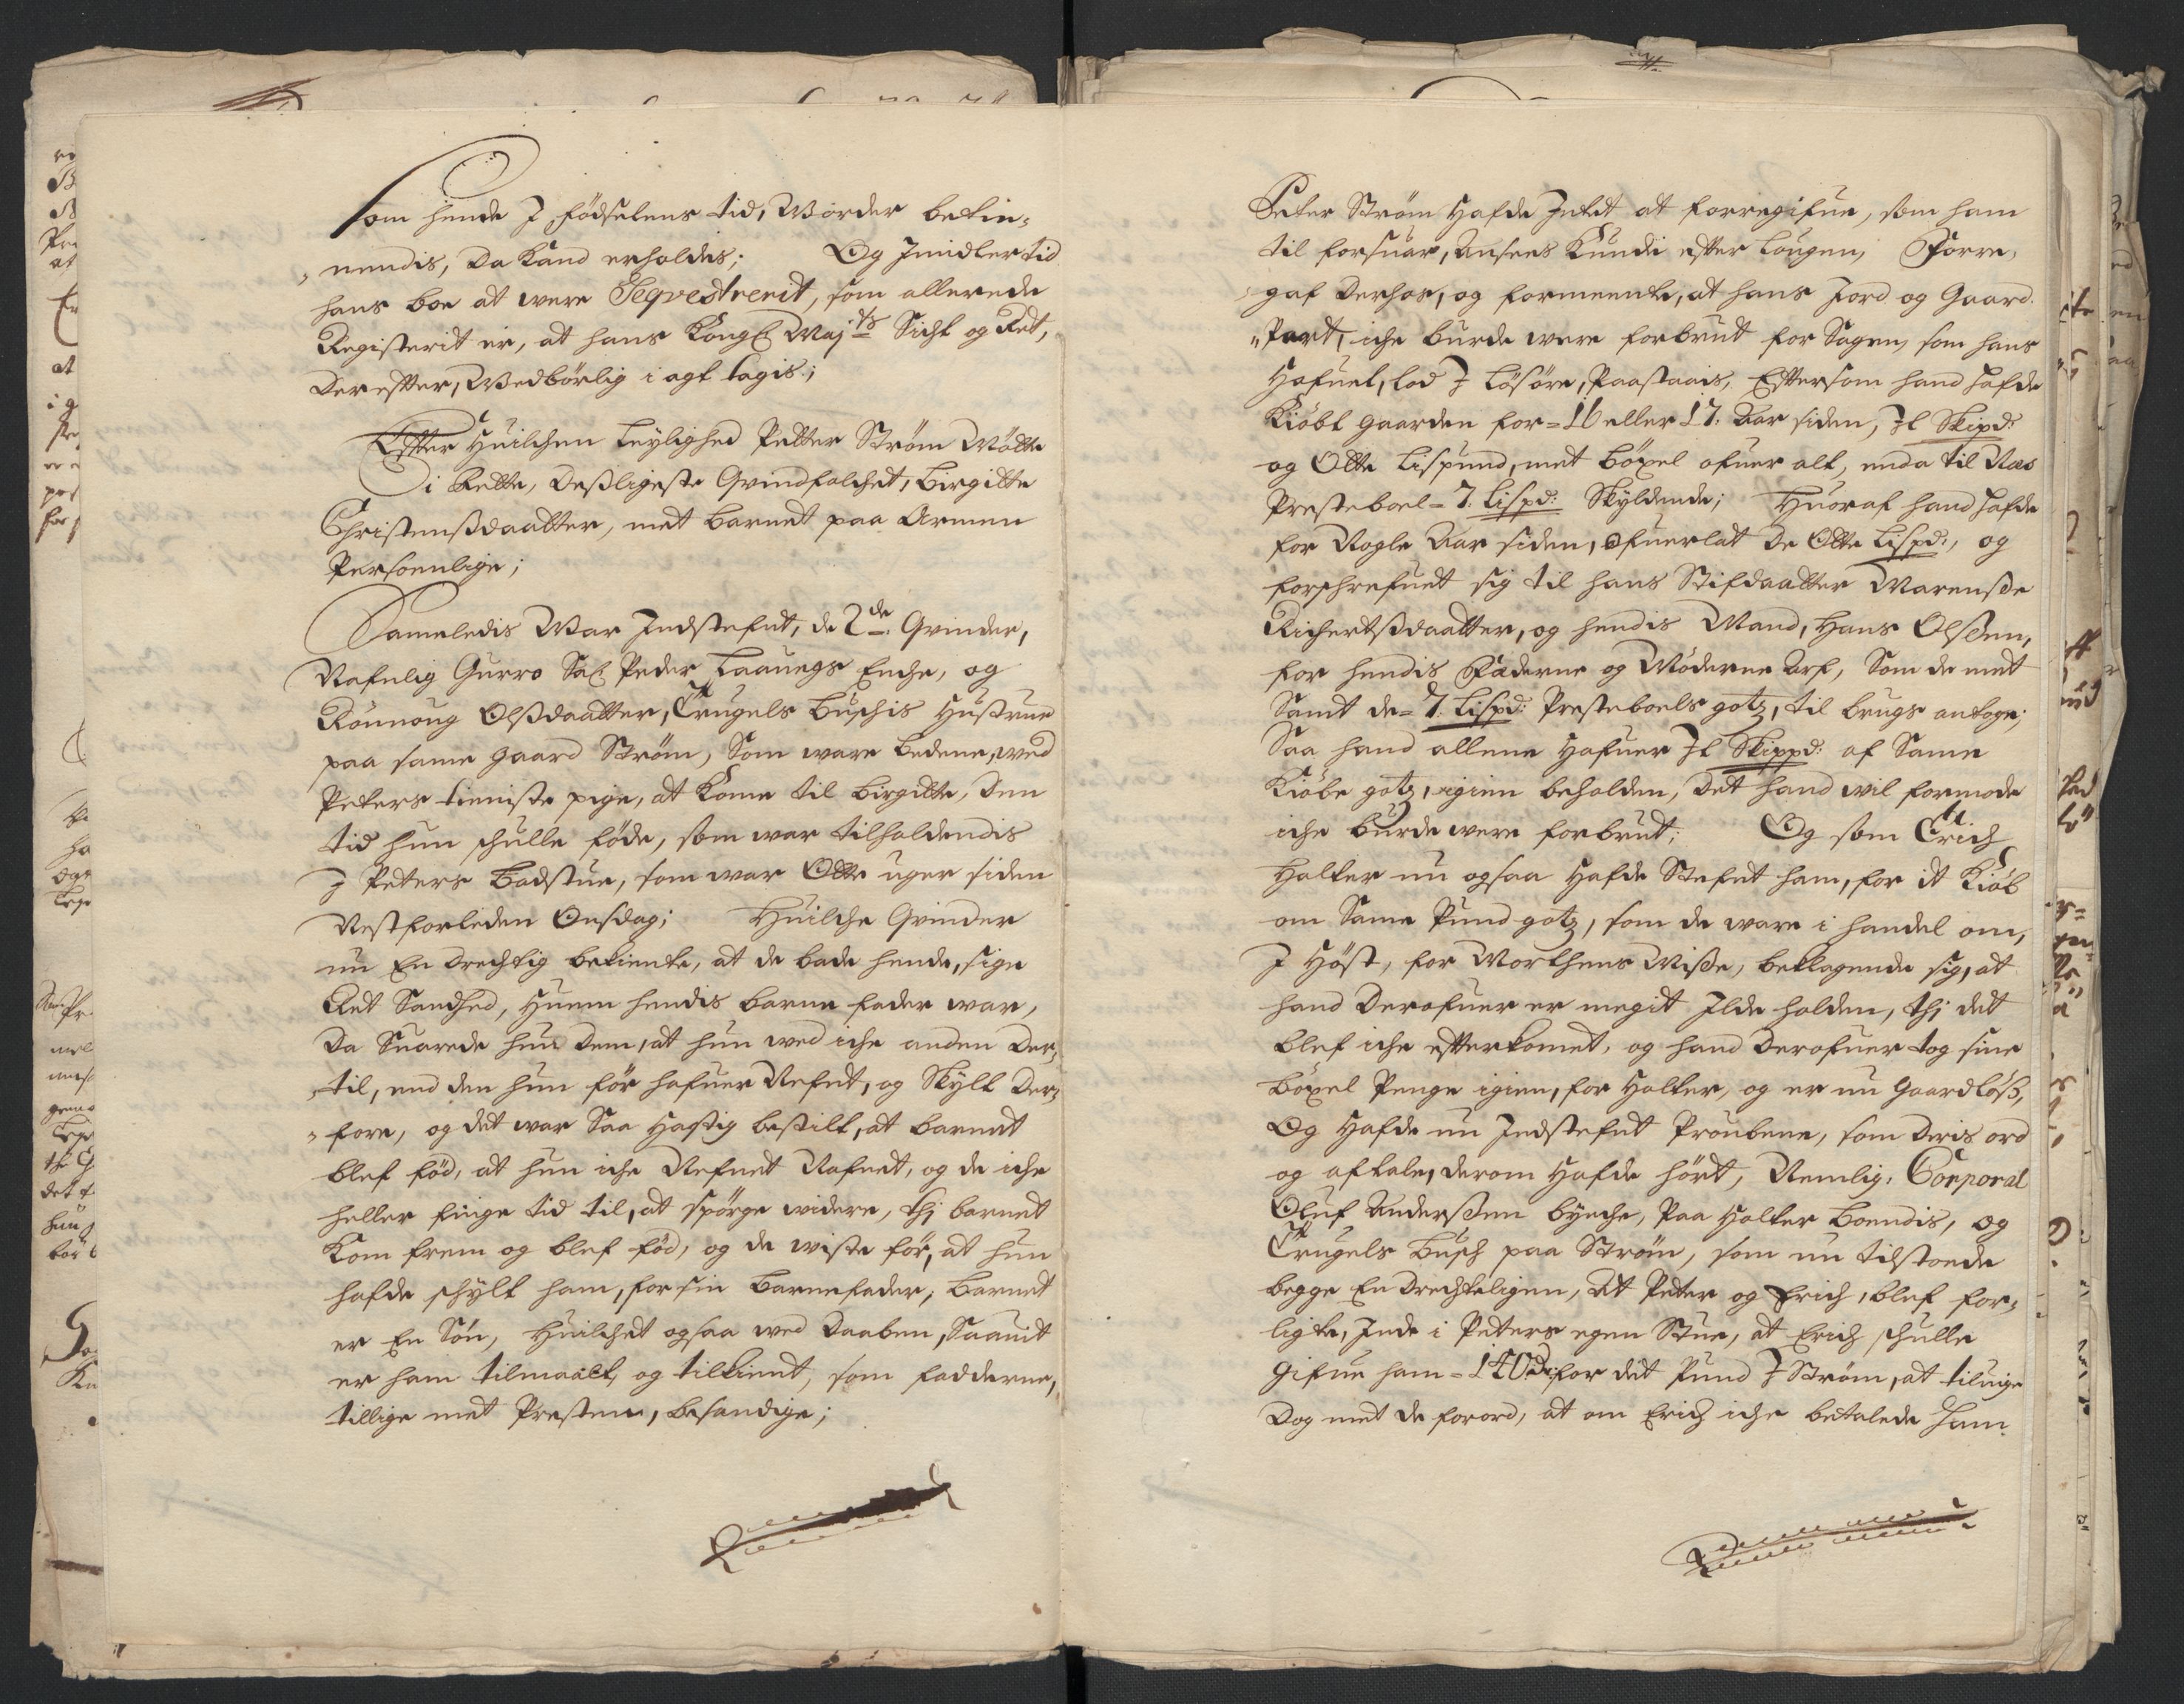 Som hende J fødselens tid, Worder betie¬
nendis, Da Kand erholdis; Og Jmidlertid
hans boe at were Seqvestrerit, som allerede
Registerit er, at hans Kongl Maj:ts Sicht og Ret,
Derefter, Wedbørlig i agt tagis;
Efter Huilchen leylighed Petter Strøm Møtte
i Rette, Desligeste Qvindfolchet, Birgitte
Christensdaatter, met barnet paa Armen
Personlige;
Sameledis War Indstefnt, de 2de Qvinder,
Nafnlig Gurro Sal Peder Enche, og
Rønnoug Olsdaatter, Engels Buschis Hustrue
paa same gaard Strøm, Som ware bedene, wed
Peters tieniste pige, at Kome til Birgitte, Den
tid hun schulle føde, som war tilholdendis
J Peters Badstue, som war Otte uger siden
Nestforleden Onsdag; Huilche Qvinder
nu En drechtig bekiente, at de bade hende, sige
Ret Sandhed, Huem hendis barne fader war,
Da Suarede hun dem, at hun wed iche anden Der¬
til, end den hun før hafuer Nefnt, og Skylt Der¬
fore, og det war Saa Hastig bestilt, at barnet
blef fød, at hun iche Nefnet Nafnet, og de iche
heller finge tid til, at spørge widere, thj barnet
Kom frem og blef fød, og de wiste før, at hun
hafde schylt ham, for sin Barnefader, Barnet
er En Søn, Huilchet ogsaa wed Daaben, Saauit
er ham tilmaalt, og tilkient, som fadderne,
tillige met Presten, besandige;
Peter Strøm Hafde Intet at forregifue, som ham
til forsuar, Ansees Kunde efter Lougen, Forre¬
gaf Derhos, og formeente, at hans Jord og Gaard
Part, iche burde were forbrut for Sagen, som hans
Hafuet, lod J løsøre, Paastaais, Eftersom hand hafde
Kiøbt gaarden for 16 eller 17. Aar siden, Jt Skipd:
og Otte Lispund, met bøxel ofuer alt, enda til Næs
Presteboel 7. Lispd: Skyldende; Huoraf hand hafde
for Nogle Aar siden, ofuerlat De Otte Lispd:, og
forschrefuet sig til hans Stifdaatter Marensse
Richertsdaatter, og hendis Mand, Hans Olsen,
for hendis Fæderne og Møderne Arf, Som de met
Samt de 7 Lispd: Presteboels gotz, til brugs antoge;
Saa hand allene Hafuer Jt Skippd: af Same
Kiøbe gotz, igien beholden, Det hand wil formode
iche burde were forbrut; Og som Erich
Holter nu ogsaa Hafde Stefnt ham, for it Kiøb
om Same Pund gotz, som de ware i handel om,
J Høst, for Morthens Misse, beklagende sig, at
hand Derofuer er megit Jlde holden, thj det
blef iche efterkomet, og hand Derofuer tog sine
Bøxel Penge igien, for Holter, og er nu gaardløss,
Og Hafde nu Indstefnt Proubene, som Deris ord
og aftale, derom Hafde hørt, Nemlig, Corporal
Oluf Anderssen Byeche, Paa Holter Boendis, og
Engels Busch paa Strøm, som nu tilstoede
begge En drechteligen, At Peter og Erich, blef for¬
ligte, Inde i Peters egen Stue, at Erich schulle
gifue ham 140 Dr for det Pund J Strøm, at tiluige
Dog met de forord, at om Erich iche betalede ham